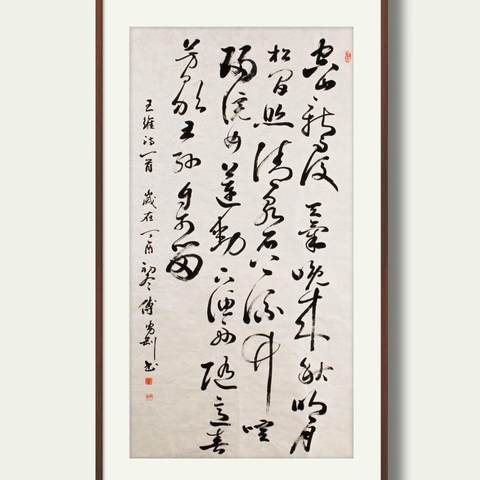 空山新雨後天氣晚來秋明月
松間照清泉石上流竹喧
歸浣女蓮動下漁舟隨意春
芳歇王孫自可留
王維詩一首 歲在丁酉初冬 傅 书